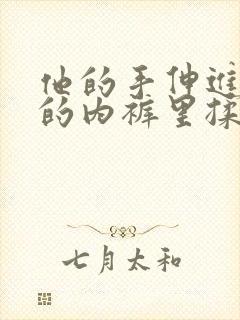 他的手伸进
的内裤里揉
七月太和